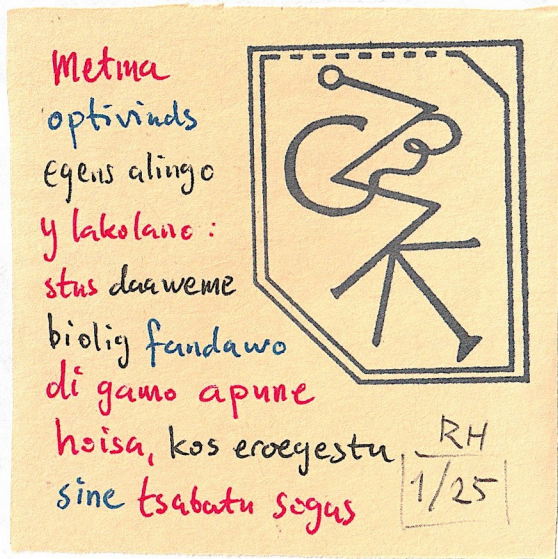 Metma
optivinds
egens alingo
y lakolano:
stus daaweme
biolig fandawo
di gamo apune
hoisa, kos eroegestu
sine tsabatu sogas
RH
1/25